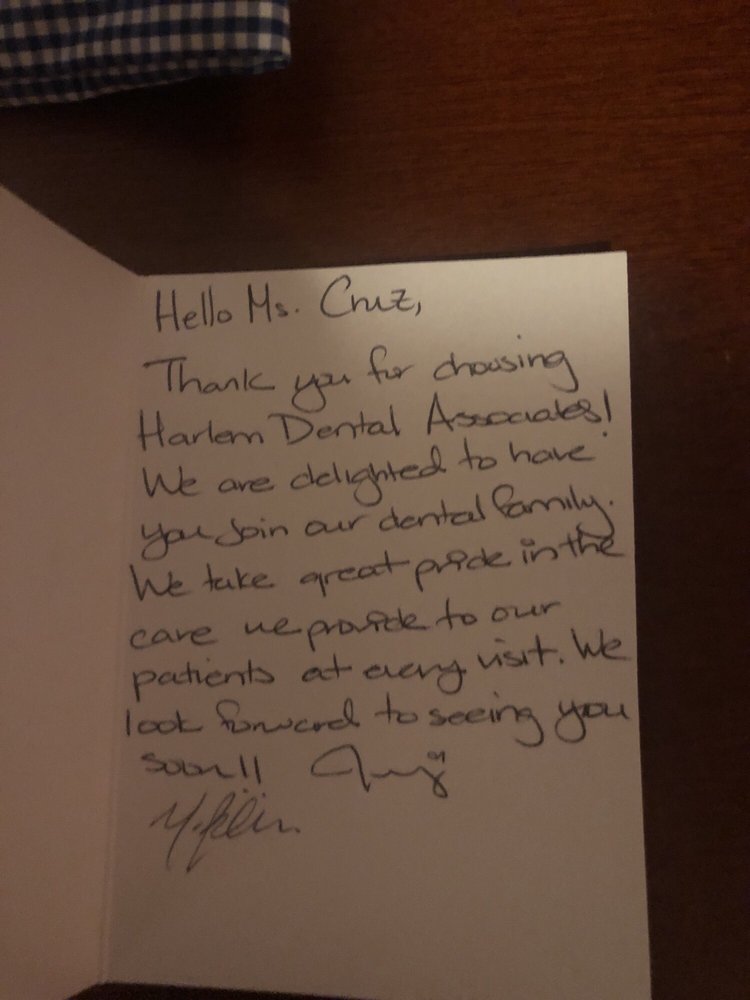 Hello Ms. Cruz,
Thank you for choosing
Harlem Dental Associates!
We are delighted to have
you join our dental family.
We take great pride in the
care we provide to our
patients at every visit. We
look forward to seeing you
soon!!